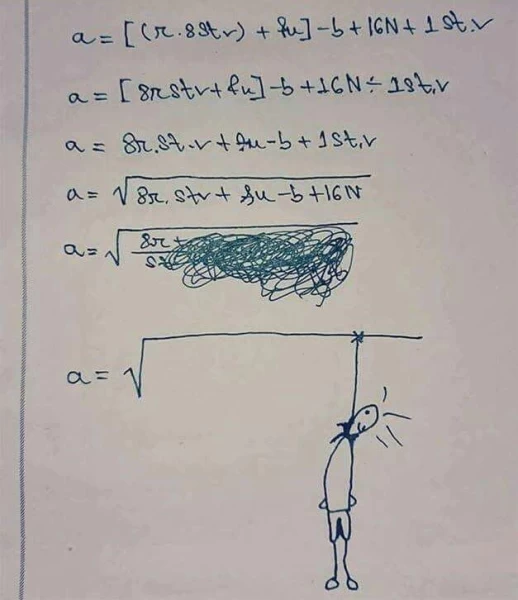 a = [(r.8St.v) + fu] - b + 16N + 1 St.v
a = [8rStv + fu] - b + 16N ÷ 1St.v
a = 8r.St.v + fu - b + 1St.v
a = √8r.Stv + fu - b + 16N
a = √8r
a = √